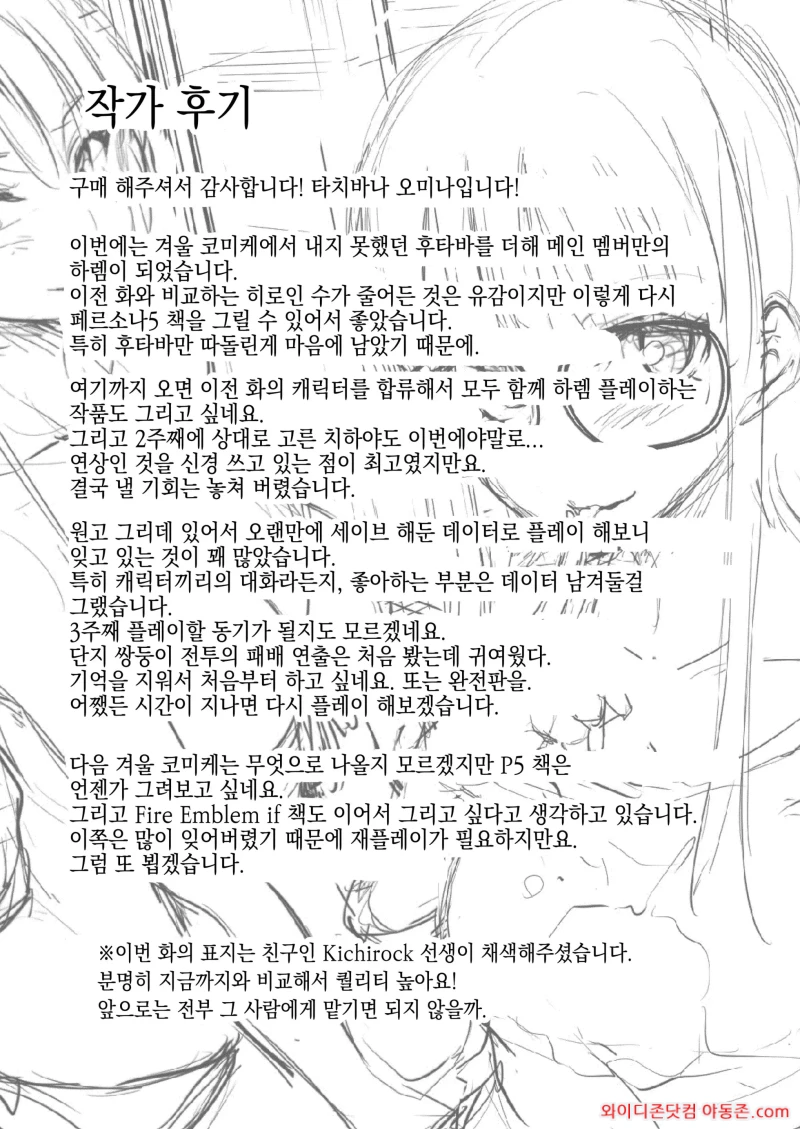 작가 후기
구매 해주셔서 감사합니다! 타치바나 오미나입니다!
이번에는 겨울 코미케에서 내지 못했던 후타바를 더해 메인 멤버만의
하렘이 되었습니다.
이전 화와 비교하는 히로인 수가 줄어든 것은 유감이지만 이렇게 다시
페르소나5 책을 그릴 수 있어서 좋았습니다.
특히 후타바만 따돌린게 마음에 남았기 때문에.
여기까지 오면 이전 화의 캐릭터를 합류해서 모두 함께 하렘 플레이하는
작품도 그리고 싶네요.
그리고 2주째에 상대로 고른 치하야도 이번에야말로...
연상인 것을 신경 쓰고 있는 점이 최고였지만요.
결국 낼 기회는 놓쳐 버렸습니다.
원고 그리데 있어서 오랜만에 세이브 해둔 데이터로 플레이 해보니
잊고 있는 것이 꽤 많았습니다.
특히 캐릭터끼리의 대화라든지, 좋아하는 부분은 데이터 남겨둘걸
그랬습니다.
3주째 플레이할 동기가 될지도 모르겠네요.
단지 쌍둥이 전투의 패배 연출은 처음 봤는데 귀여웠다.
기억을 지워서 처음부터 하고 싶네요. 또는 완전판을.
어쨌든 시간이 지나면 다시 플레이 해보겠습니다.
다음 겨울 코미케는 무엇으로 나올지 모르겠지만 P5 책은
언젠가 그려보고 싶네요.
그리고 Fire Emblem if 책도 이어서 그리고 싶다고 생각하고 있습니다.
이쪽은 많이 잊어버렸기 때문에 재플레이가 필요하지만요.
그럼 또 뵙겠습니다.
※이번 화의 표지는 친구인 Kichirock 선생이 채색해주셨습니다.
분명히 지금까지와 비교해서 퀄리티 높아요!
앞으로는 전부 그 사람에게 맡기면 되지 않을까.
와이디존닷컴 야동존.com